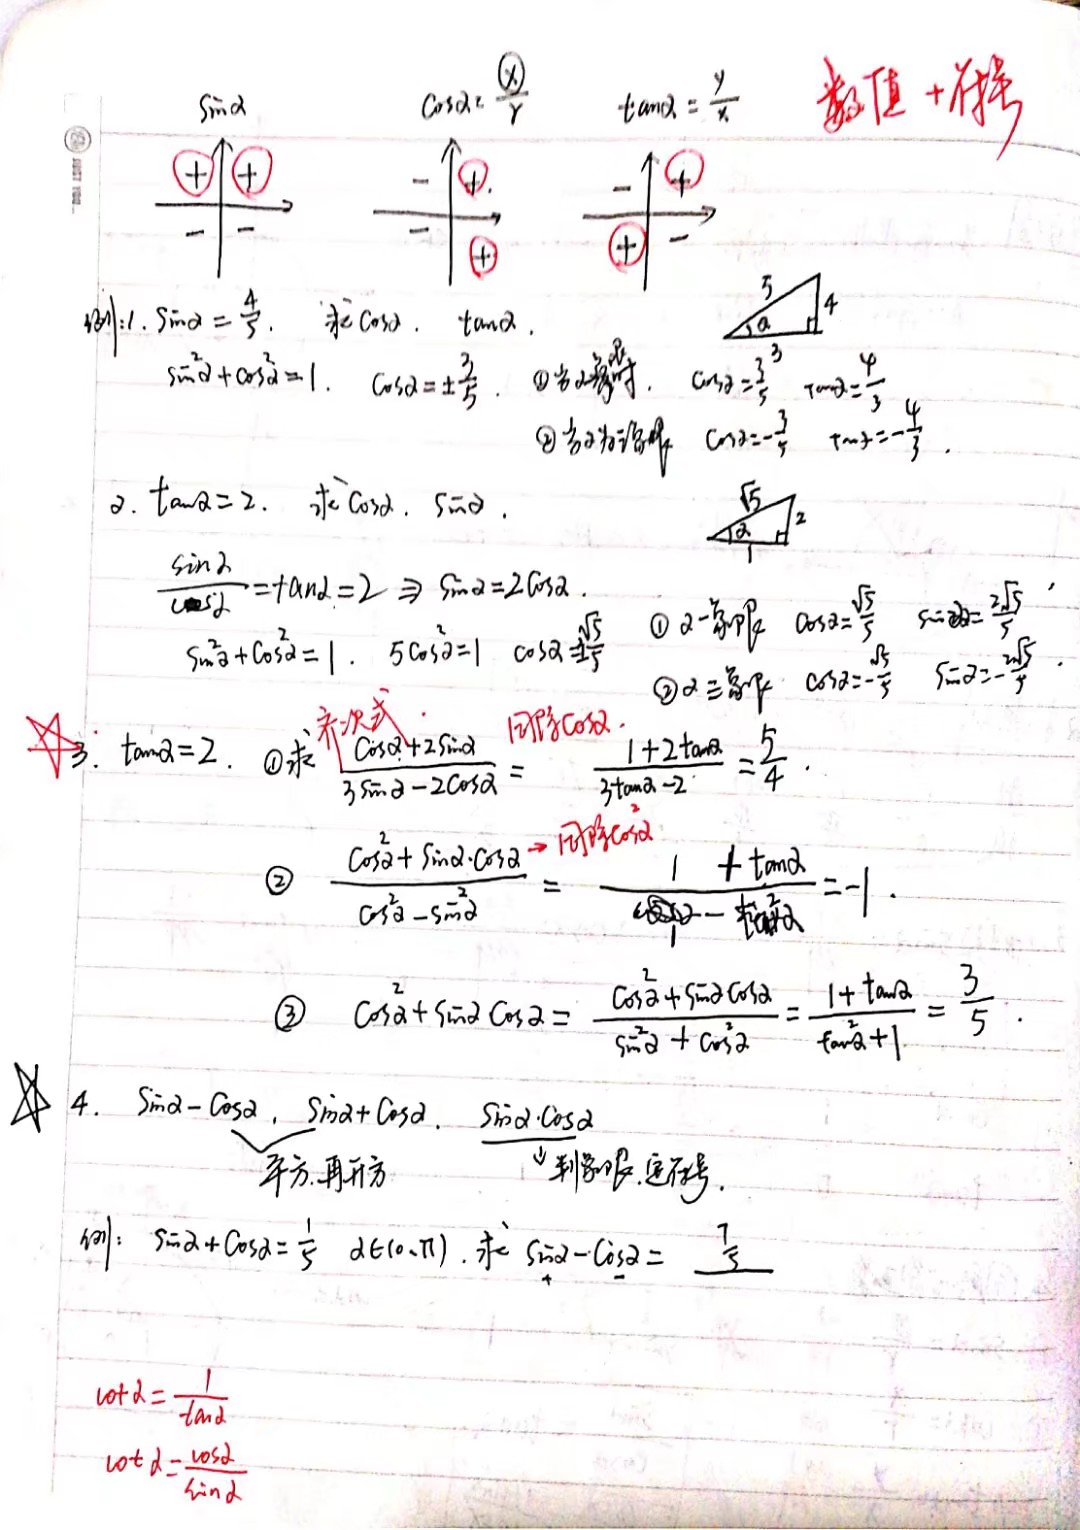 数值+符号
sinα cosα = x/r tanα = y/x
+ + - + - +
- - - + + -
例:1. sinα = 4/5. 求cosα. tanα.
5 4 α 3
sin²α+cos²α=1. cosα=±3/5. ①当α一象限时. cosα=3/5 tanα=4/3
②当α为二象限 cosα=-3/5 tanα=-4/3.
2. tanα=2. 求cosα. sinα.
√5 2 α 1
sinα/cosα=tanα=2⇒sinα=2cosα.
①α一象限 cosα=√5/5 sinα=2√5/5
sin²α+cos²α=1. 5cos²=1 cosα=±√5/5
②α三象限 cosα=-√5/5 sinα=-2√5/5.
齐次式 同除cosα.
3. tanα=2. ①求 (cosα+2sinα)/(3sinα-2cosα) = (1+2tanα)/(3tanα-2) = 5/4.
② (cos²α+sinα·cosα)/(cos²α-sin²α) →同除cos²α = (1+tanα)/(1-tan²α) = -1.
③ cos²α+sinαcosα = (cos²α+sinαcosα)/(sin²α+cos²α) = (1+tanα)/(tan²α+1) = 3/5.
4. sinα-cosα, sinα+cosα, sinα·cosα
平方.再开方 ↓判象限.定符号.
例: sinα+cosα=1/5 α∈(0,π). 求 sinα-cosα= 7/5
+ -
cotα=1/tanα
cotα=cosα/sinα